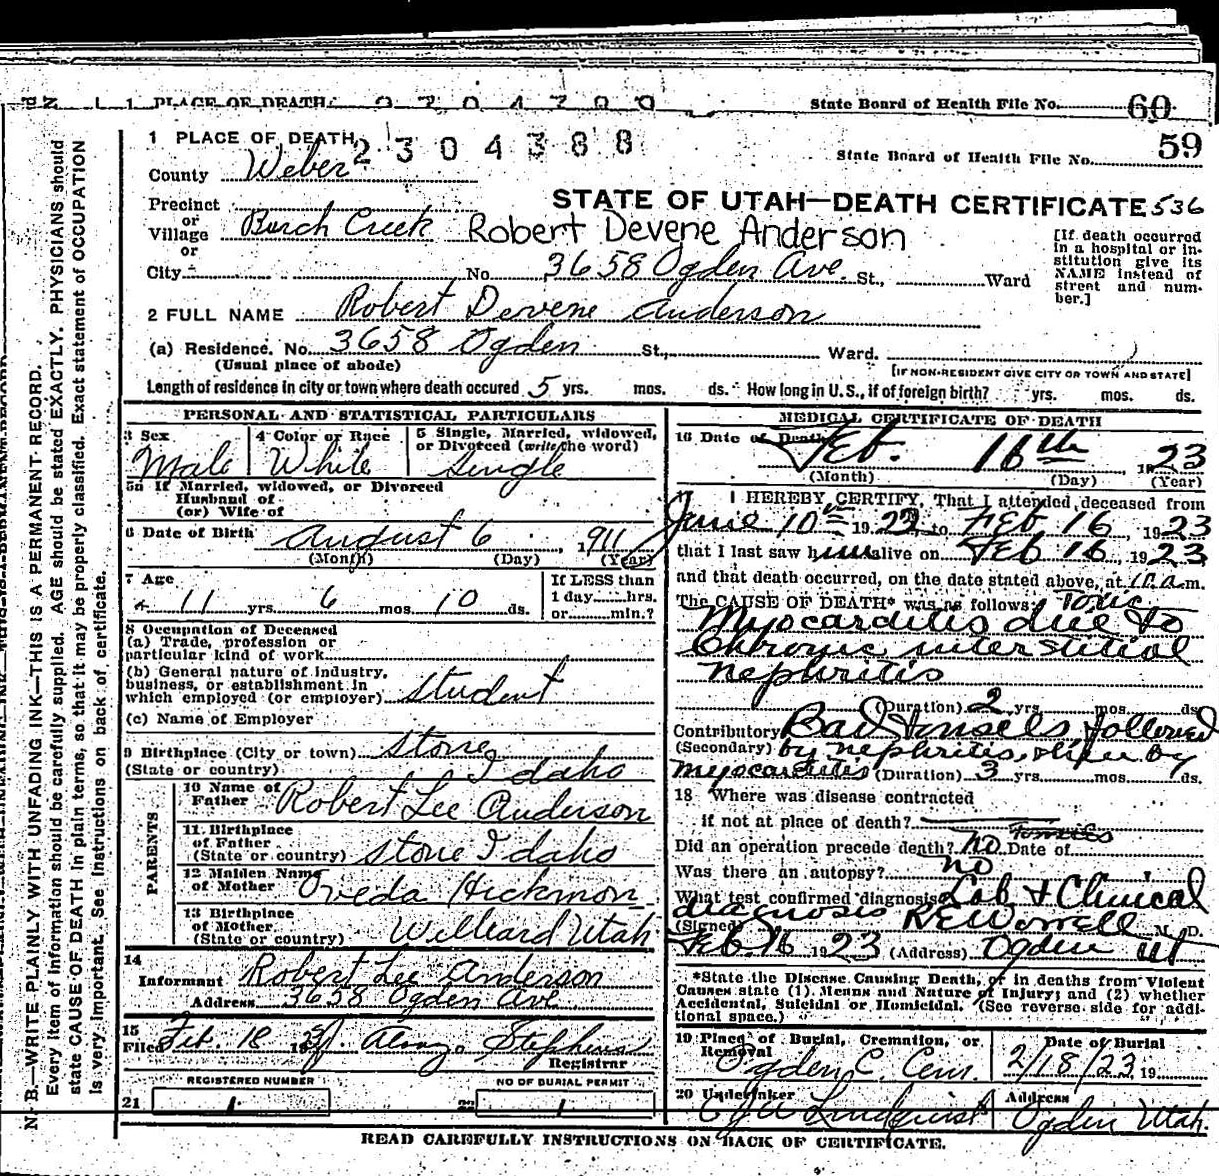 1 PLACE OF DEATH
State Board of Health File No. 60
1 PLACE OF DEATH 2304388
State Board of Health File No. 59
County Weber
STATE OF UTAH—DEATH CERTIFICATE 536
Precinct
or
Village Burch Creek Robert Devene Anderson
or
City No. 3658 Ogden Ave. St., Ward
[If death occurred in a hospital or institution give its NAME instead of street and number.]
2 FULL NAME Robert Devene Anderson
(a) Residence. No. 3658 Ogden St., Ward.
(Usual place of abode) [IF NON-RESIDENT GIVE CITY OR TOWN AND STATE]
Length of residence in city or town where death occured 5 yrs. mos. ds. How long in U. S., if of foreign birth? yrs. mos. ds.
PERSONAL AND STATISTICAL PARTICULARS
3 Sex Male
4 Color or Race White
5 Single, Married, widowed, or Divorced (write the word) Single
5a If Married, widowed, or Divorced
Husband of
(or) Wife of
6 Date of Birth August 6, 1911
(Month) (Day) (Year)
7 Age 11 yrs. 6 mos. 10 ds.
If LESS than
1 day hrs.
or min.?
8 Occupation of Deceased
(a) Trade, profession or
particular kind of work
(b) General nature of industry,
business, or establishment in
which employed (or employer) student
(c) Name of Employer
9 Birthplace (City or town) Stone
(State or country) Idaho
PARENTS
10 Name of Father Robert Lee Anderson
11 Birthplace of Father
(State or country) Stone Idaho
12 Maiden Name of Mother Oveda Hickmon
13 Birthplace of Mother
(State or country) Willard Utah
14
Informant Robert Lee Anderson
Address 3658 Ogden Ave
15
Filed Feb. 18 Stephens
Registrar
REGISTERED NUMBER NO OF BURIAL PERMIT
21 1 22 1
MEDICAL CERTIFICATE OF DEATH
16 Date of Death Feb. 16th 1923
(Month) (Day) (Year)
I HEREBY CERTIFY, That I attended deceased from
June 10th 1922, to Feb 16 1923
that I last saw him alive on Feb 16, 1923
and that death occurred, on the date stated above, at 10 a.m.
The CAUSE OF DEATH* was as follows: Toxic
Myocarditis due to
Chronic interstitial
nephritis
(Duration) 2 yrs. mos. ds.
Contributory Bad tonsels followed
(Secondary) by nephritis, then by
myocarditis (Duration) 3 yrs. mos. ds.
18 Where was disease contracted
if not at place of death?
Did an operation precede death? no Date of Tonsils
Was there an autopsy? no
What test confirmed diagnosis Lab & Clinical
diagnosis
(Signed) R E Worrell M. D.
Feb. 16 1923 (Address) Ogden Ut
*State the Disease Causing Death, or in deaths from Violent
Causes state (1) Means and Nature of Injury; and (2) whether
Accidental, Suicidal or Homicidal. (See reverse side for additional space.)
19 Place of Burial, Cremation, or Removal Ogden C. Cem.
Date of Burial 2/18/23, 19
20 Undertaker Lindquist
Address Ogden Utah.
READ CAREFULLY INSTRUCTIONS ON BACK OF CERTIFICATE.
N. B.—WRITE PLAINLY WITH UNFADING INK—THIS IS A PERMANENT RECORD.
Every item of information should be carefully supplied. AGE should be stated EXACTLY. PHYSICIANS should
state CAUSE OF DEATH in plain terms, so that it may be properly classified. Exact statement of OCCUPATION
is very important. See instructions on back of certificate.